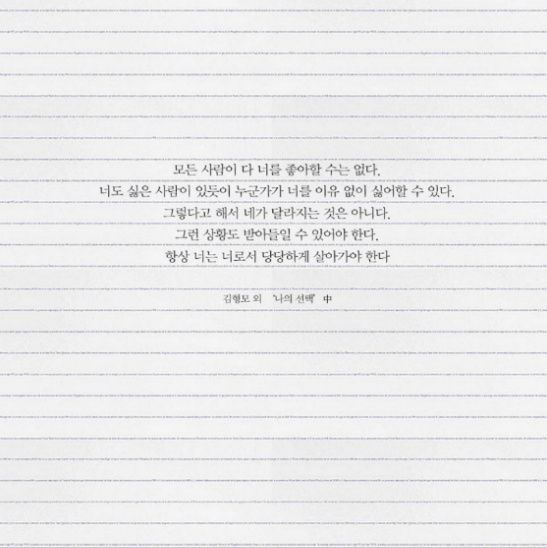 모든 사람이 다 너를 좋아할 수는 없다.
너도 싫은 사람이 있듯이 누군가가 너를 이유 없이 싫어할 수 있다.
그렇다고 해서 네가 달라지는 것은 아니다.
그런 상황도 받아들일 수 있어야 한다.
항상 너는 너로서 당당하게 살아가야 한다
김형모 외 '나의 선택' 中